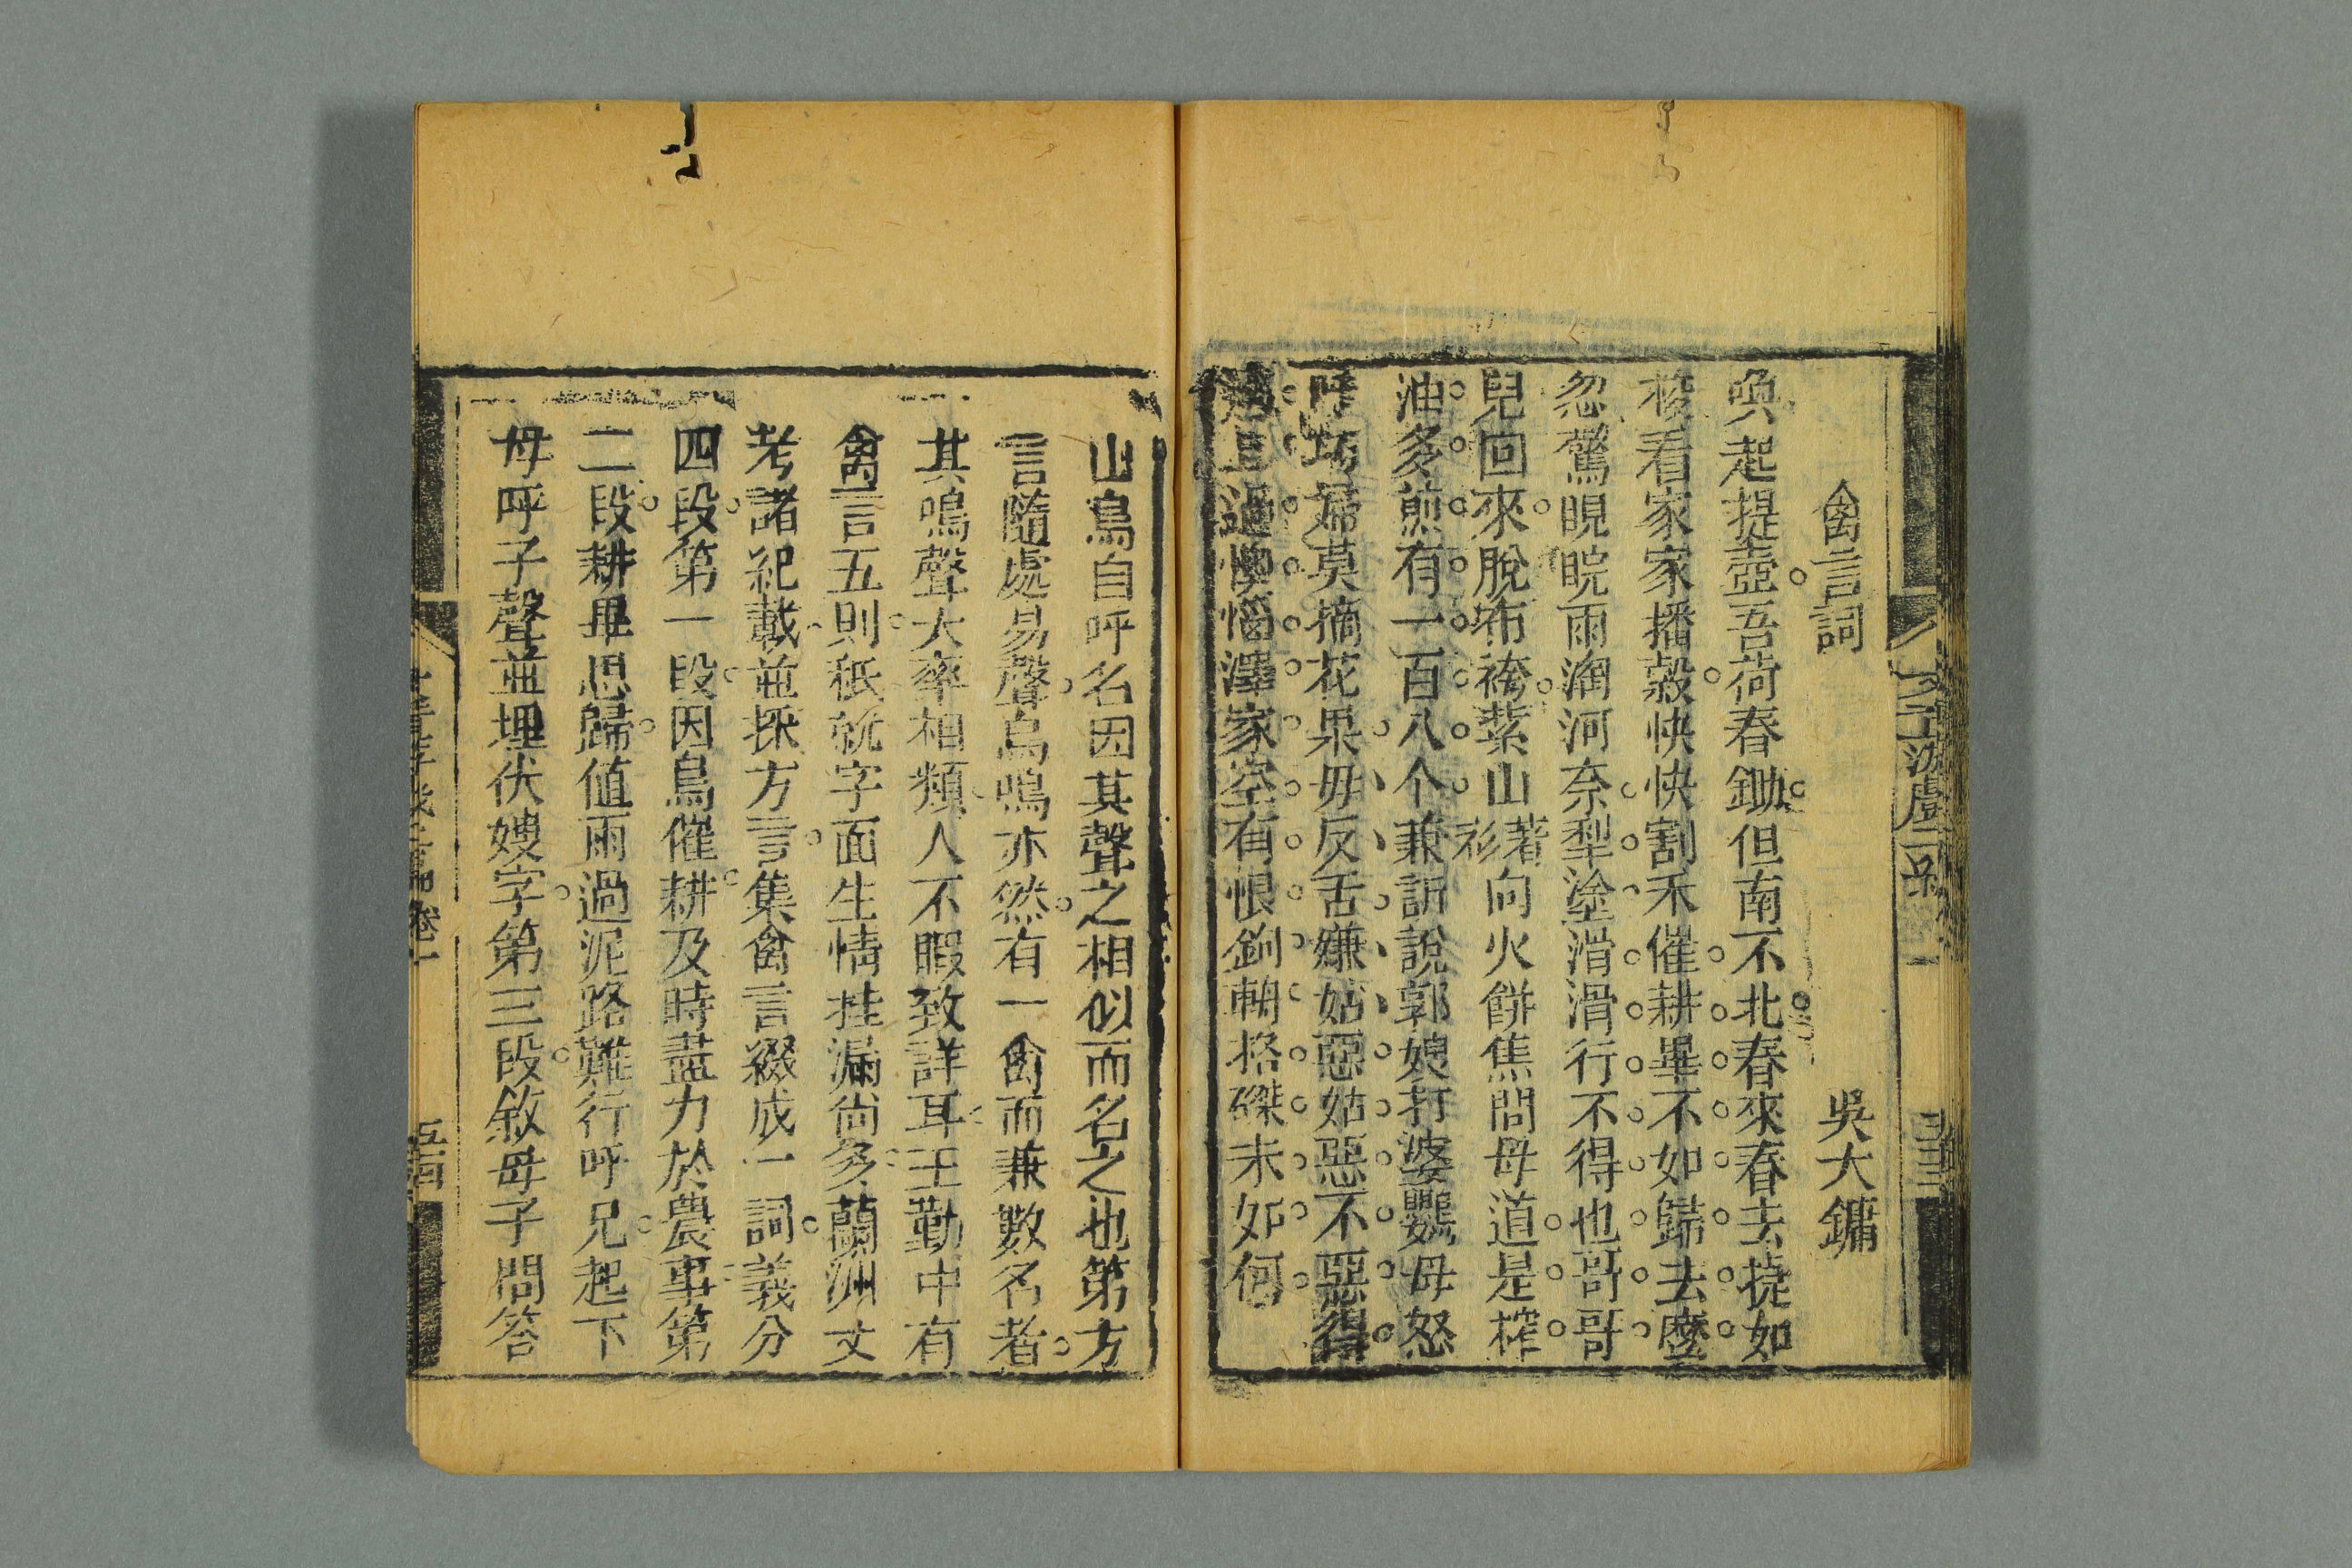 禽言詞　　吳大鏞
喚起提壺吾荷春鋤但南不北春來春去㨗如
梭看家家播穀快快割禾催耕畢不如歸去麼
忽驚睍睆雨淘河奈犁塗滑滑行不得也哥哥
兒回來脫布袴紫山著衫向火餅焦問母道是榨
油多煎有一百八个兼訴說郭嫂打婆鸚母怒
呼巧婦莫摘花果毋反舌嫌姑惡姑惡不惡得
過且過懊惱澤家空有恨鉤輈挌磔未如何
山鳥自呼名因其聲之相似而名之也第方
言隨處易聲鳥鳴亦然有一禽而兼數名者
其鳴聲大率相類人不暇致詳耳王勤中有
禽言五則秪就字面生情挂漏尙多蘭洲文
考諸紀載並採方言集禽言綴成一詞義分
四段第一段因鳥催耕及時盡力於農事第
二段耕畢思歸值雨過泥路難行呼兄起下
母呼子聲並埋伏嫂字第三段敘母子問答